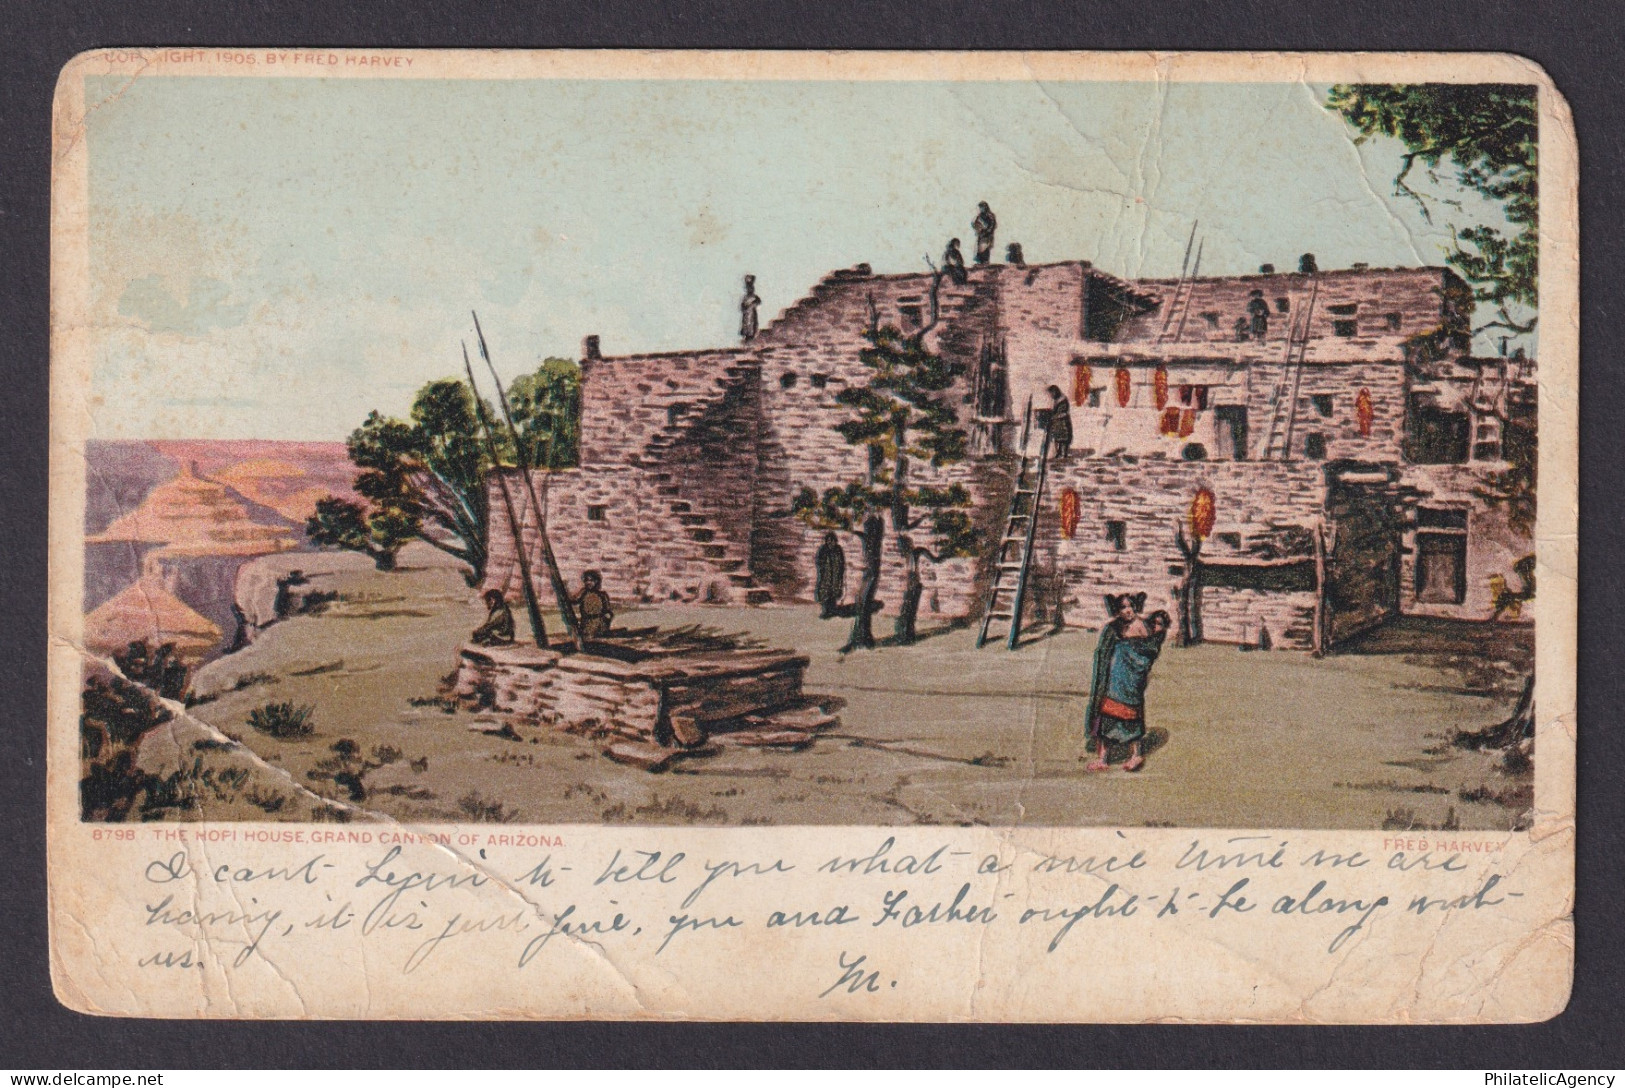 COPYRIGHT, 1905, BY FRED HARVEY
8798. THE HOPI HOUSE, GRAND CANYON OF ARIZONA.
FRED HARVEY
I can't begin to tell you what a nice time we are
having, it is just fine, you and Father ought to be along with
us.
M.
PhilatelicAgency